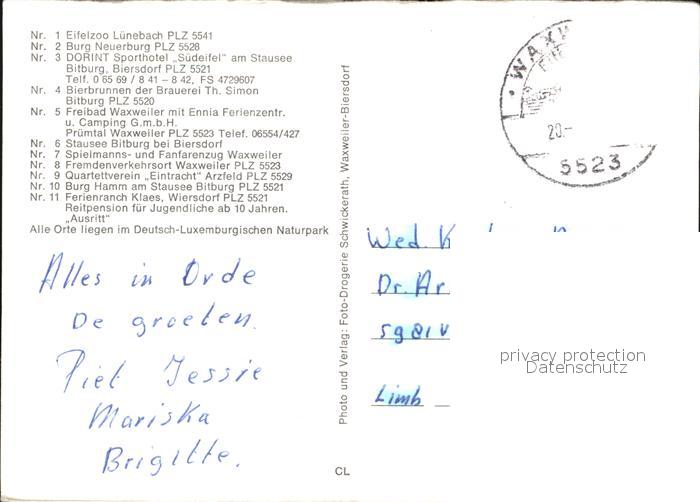 Nr. 1 Eifelzoo Lünebach PLZ 5541
Nr. 2 Burg Neuerburg PLZ 5528
Nr. 3 DORINT Sporthotel „Südeifel" am Stausee
Bitburg, Biersdorf PLZ 5521
Telf. 0 65 69 / 8 41 – 8 42, FS 4729607
Nr. 4 Bierbrunnen der Brauerei Th. Simon
Bitburg PLZ 5520
Nr. 5 Freibad Waxweiler mit Ennia Ferienzentr.
u. Camping G.m.b.H.
Prümtal Waxweiler PLZ 5523 Telef. 06554/427
Nr. 6 Stausee Bitburg bei Biersdorf
Nr. 7 Spielmanns- und Fanfarenzug Waxweiler
Nr. 8 Fremdenverkehrsort Waxweiler PLZ 5523
Nr. 9 Quartettverein „Eintracht" Arzfeld PLZ 5529
Nr. 10 Burg Hamm am Stausee Bitburg PLZ 5521
Nr. 11 Ferienranch Klaes, Wiersdorf PLZ 5521
Reitpension für Jugendliche ab 10 Jahren.
„Ausritt"
Alle Orte liegen im Deutsch-Luxemburgischen Naturpark
Alles in Orde
De groeten.
Piet Jessie
Mariska
Brigitte.
Photo und Verlag: Foto-Drogerie Schwickerath, Waxweiler-Biersdorf
CL
WAXW
20.-
5523
Wed. K
Dr. Ar
Limb
privacy protection
Datenschutz